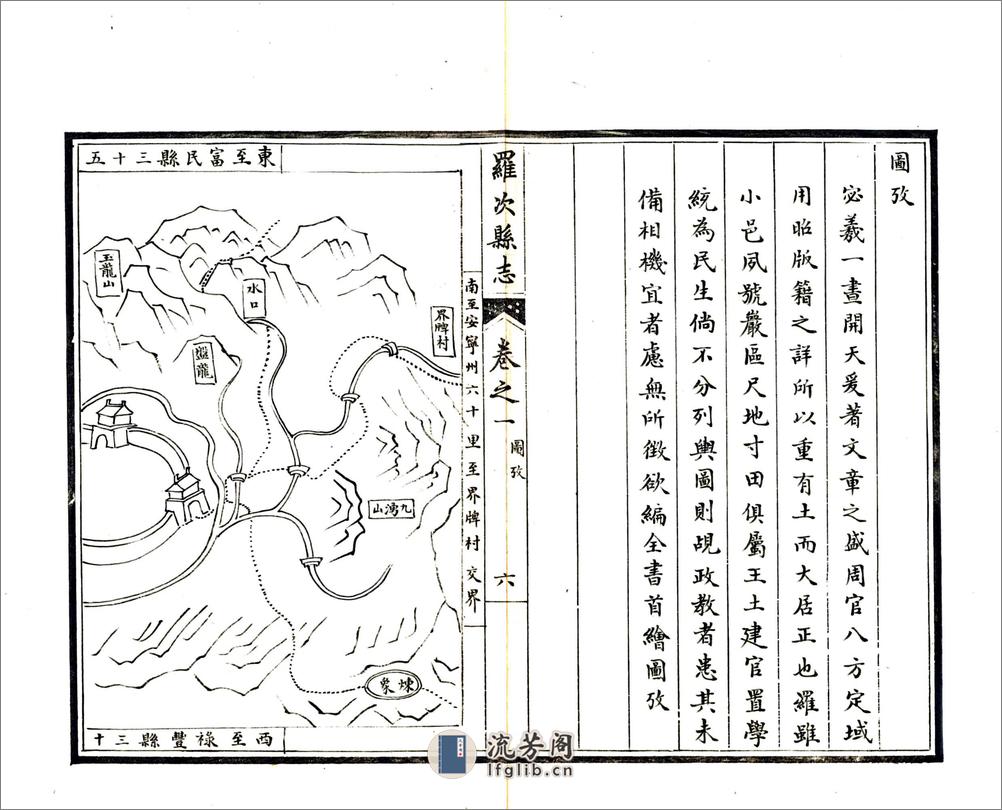 圖攷
宓羲一畫開天爰著文章之盛周官八方定域
用昭版籍之詳所以重有土而大居正也羅雖
小邑夙號巖區尺地寸田俱屬王土建官置學
統為民生倘不分列輿圖則覘政教者患其未
備相機宜者慮無所徵欲編全書首繪圖攷
羅次縣志
卷之一
圖攷
六
東至富民縣三十五
南至安寧州六十里至界牌村交界
西至祿豐縣三十
玉龍山
水口
界牌村
龍
九鴻山
煉象
流芳阁
lfglib.cn